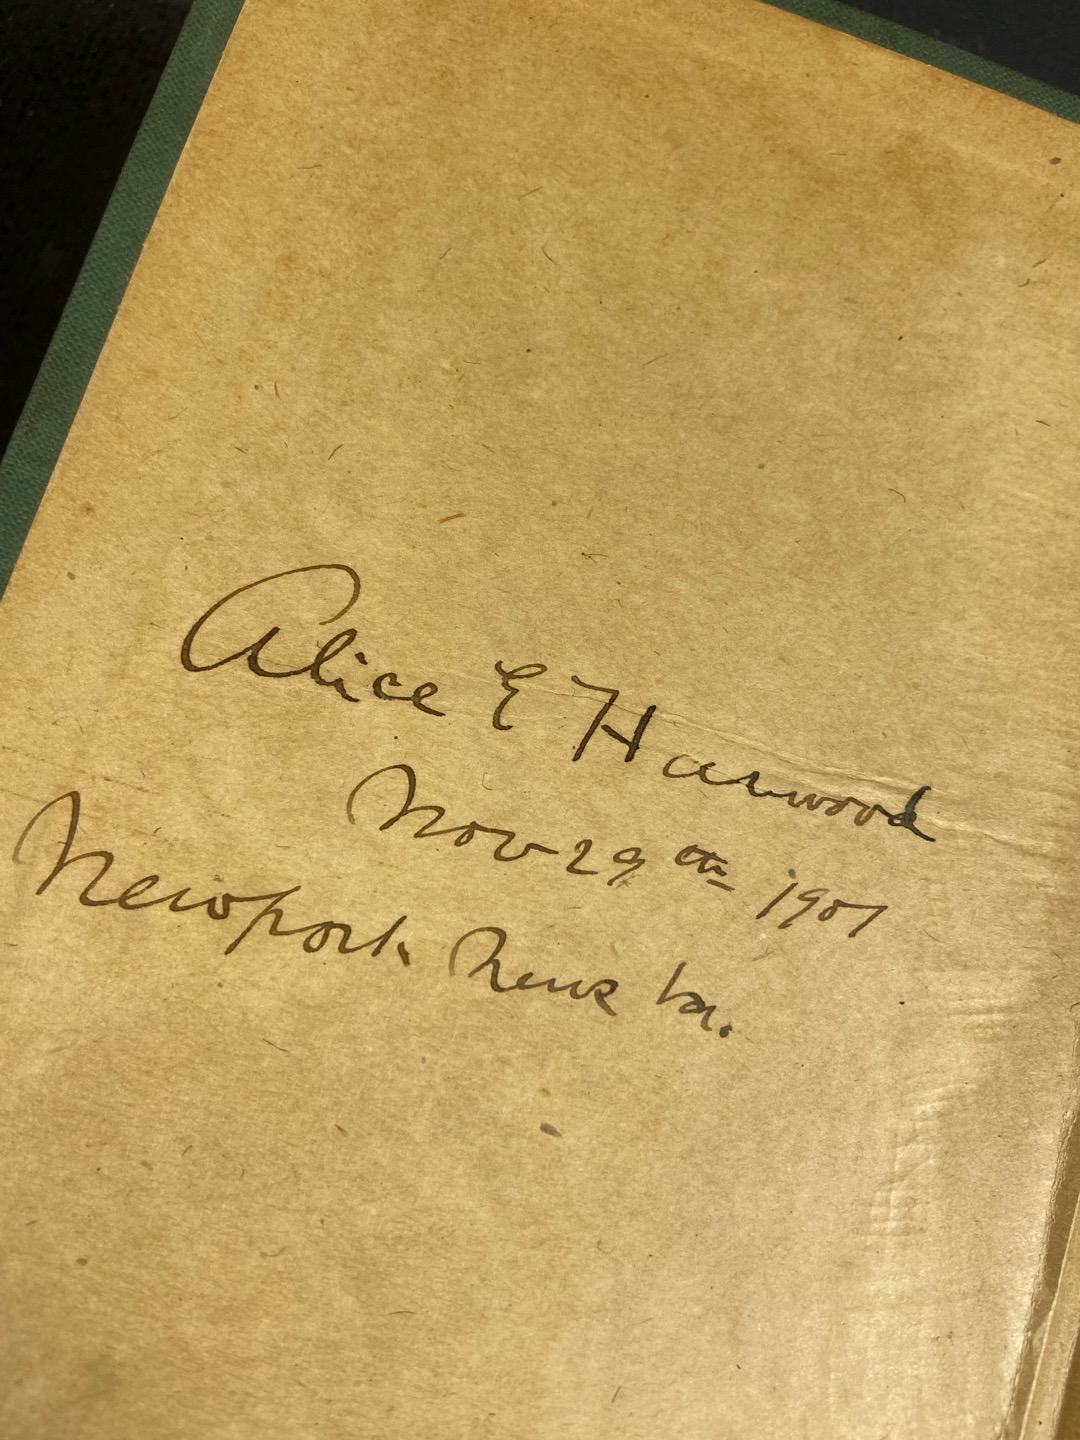 Alice E Harwood
Nov 29th 1901
Newport News Va.